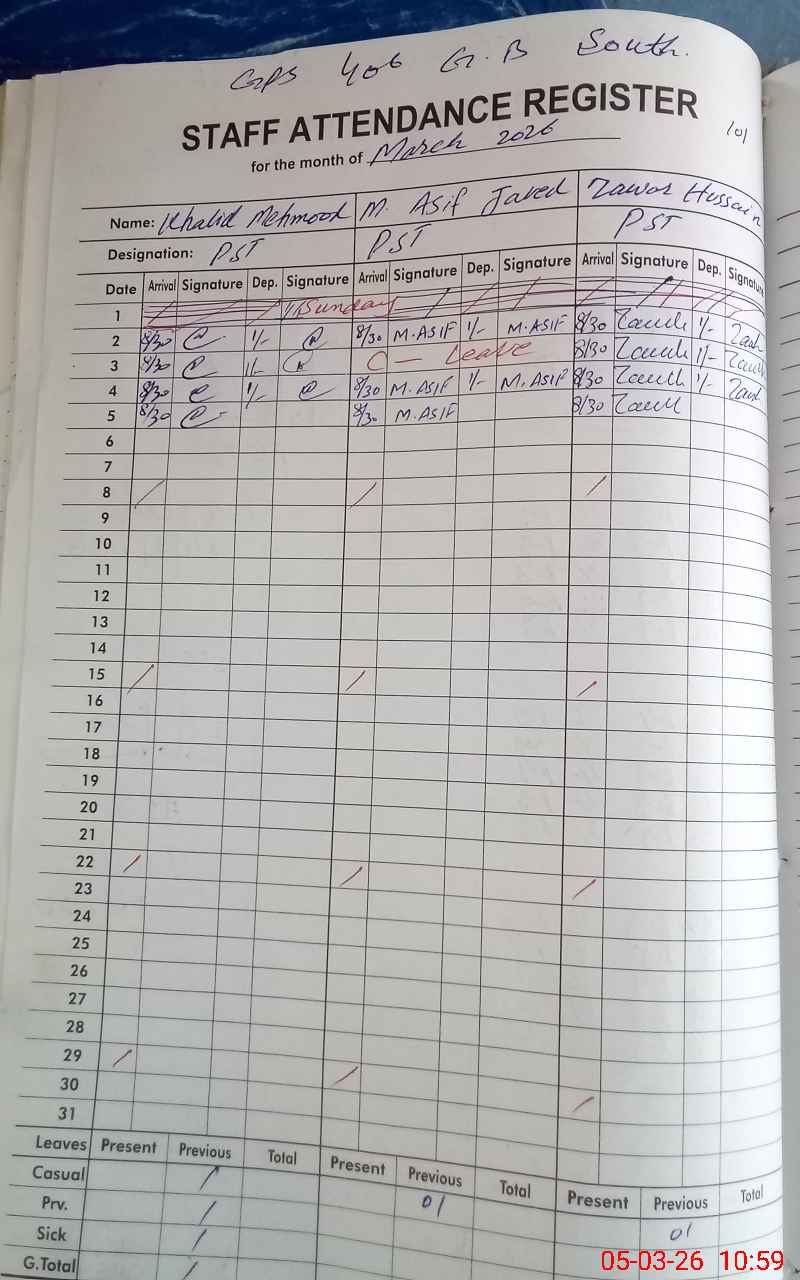 GPS 406 G.B South.
STAFF ATTENDANCE REGISTER
101
for the month of March 2026
Name: Khalid Mehmood M. Asif Javed Zawar Hussain
Designation: PST PST PST
Date Arrival Signature Dep. Signature Arrival Signature Dep. Signature Arrival Signature Dep. Signature
1 Sunday
2 8/30 1/- 8/30 M.ASIF 1/- M.ASIF 8/30 1/-
3 8/30 1/- C — Leave 8/30 1/-
4 8/30 1/- 8/30 M.ASIF 1/- M.ASIF 8/30 1/-
5 8/30 8/30 M.ASIF 8/30
6
7
8
9
10
11
12
13
14
15
16
17
18
19
20
21
22
23
24
25
26
27
28
29
30
31
Leaves Present Previous Total Present Previous Total Present Previous Total
Casual 01 01
Prv.
Sick
G.Total
05-03-26 10:59